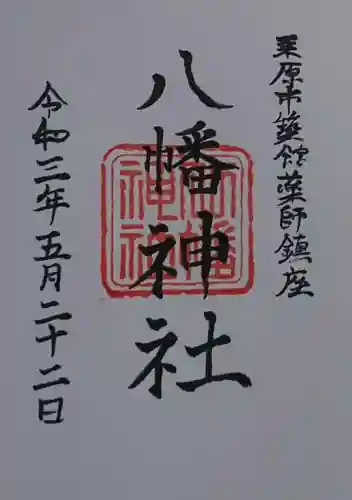 栗原市築館薬師鎮座
八幡神社
令和三年五月二十二日
八幡神社